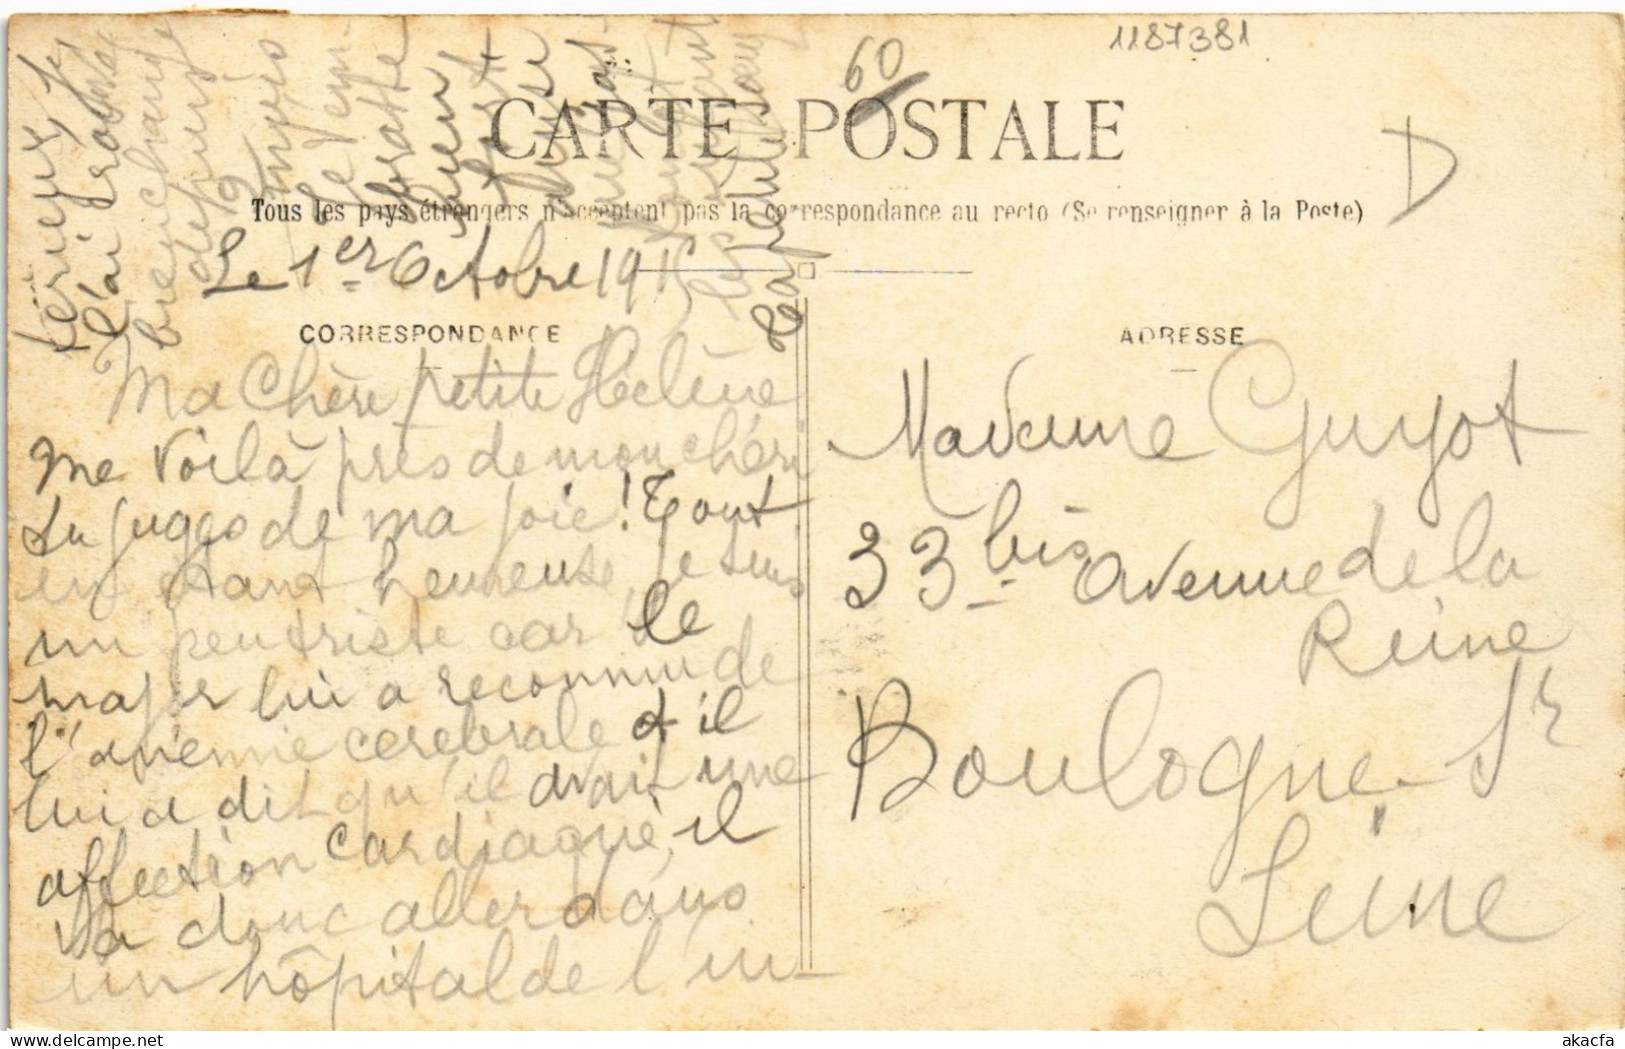 1187381
60
CARTE POSTALE
D
Tous les pays étrangers n'acceptent pas la correspondance au recto (Se renseigner à la Poste)
Le 1er Octobre 191
CORRESPONDANCE
Ma Chère petite Hélène
me voilà près de mon chéri
tu juges de ma joie! Tout
en étant heureuse, je suis
un peu triste car le
major lui a reconnu de
l'anémie cérébrale et il
lui a dit qu'il avait une
affection cardiaque, il
va donc aller dans
un hôpital de l'in-
térieur, je
l'ai trouvé
bien changé
depuis
2 mois
Le temps
ADRESSE
Madame Guyot
33 bis avenue de la
Reine
Boulogne-Sr
Seine
akacfa